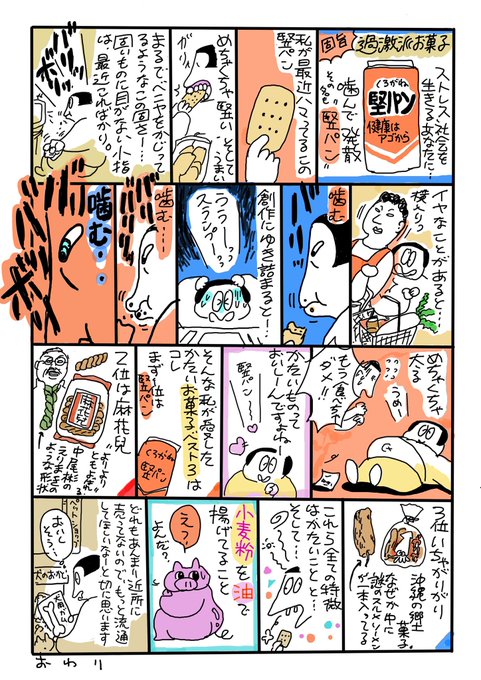 過激派お菓子
固旨
ストレス社会も
生きるあなたに…
くろがね
堅パン
健康は
アゴから
噛んで発散
その名も"堅パン"
私が最近ハマってるこの
堅パン
めちゃくちゃ堅い そしてうまい
ガ
まるでベニヤをかじって
るようなこの固さ…!
固いものに目がない小指
は、最近こればかり。
ボリッ
イヤなことがあると…
横入りっ
噛む
創作にゆき詰まると…!
ううう…っ
スランプ…っ
噛む…
噛む…
ボリッ
めちゃくちゃ
太る
うめー
もう食べちゃ
ダメ!!
かたいものって
おいしーんですよねー
堅パン…
そんな私が愛した
かたいお菓子ベスト3は
コレ
まず一位は
堅パン
くろがね
堅パン
2位は麻花兒
麻花兒
よりより
ともよばれ
中尾彬の
えりまきの
ような形状
3位いちゃがりがり
沖縄の郷土
菓子。
なぜか中に
謎のスルメソーメン
が一本入ってる
これら全ての特徴
はかたいことと…
そして…
小麦粉を油で
揚げてること
よんだ?
えっ
どれもあんまり近所に
売ってないので、もっと流通
してほしいなーと切に思います
ペットショップ
おいし
そう…
犬のおかし
おわり